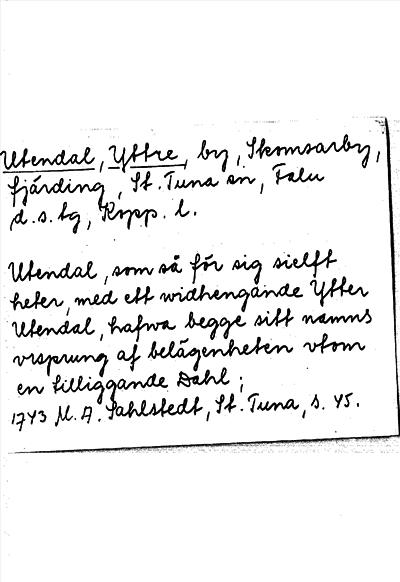 Utendal, Yttre, by, Skomsarby,
fjärding, St. Tuna sn, Falu
d.s. tg, Kopp. l.
Utendal, som så för sig sielft
heter, med ett widhengande Ytter
Utendal, hafwa begge sitt namns
vrsprung af belägenheten vtom
en tilliggande Dahl;
1743 M. A. Sahlstedt, St. Tuna, s. 45.